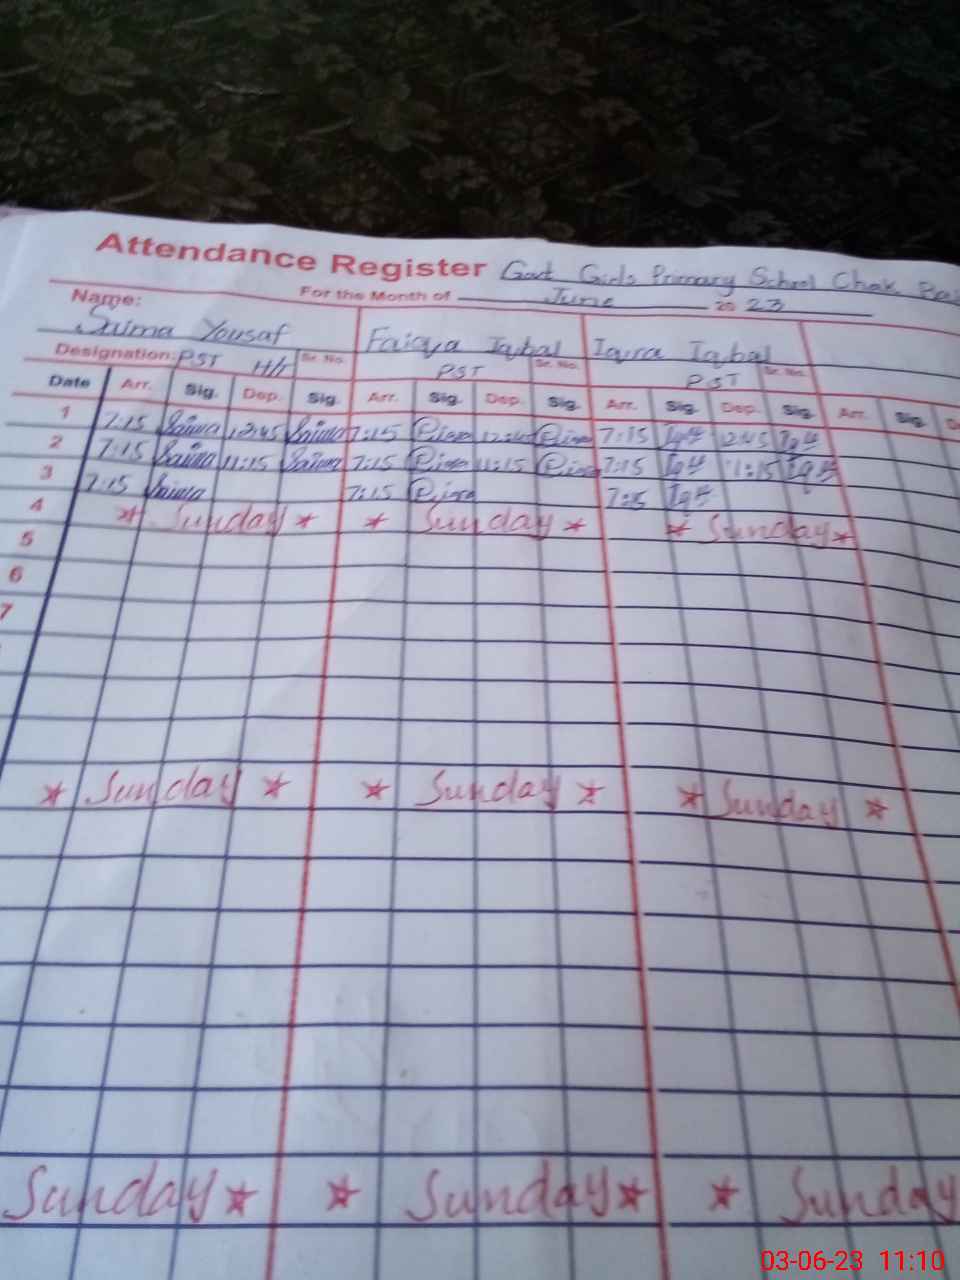 Attendance Register Govt Girls Primary School Chak
For the Month of June 20 23
Name:
Saima Yousaf Faiqya Iqbal Iqura Iqbal
Designation: PST H/t Sr. No. PST Sr. No. PST Sr. No.
Date Arr. Sig. Dep. Sig. Arr. Sig. Dep. Sig. Arr. Sig. Dep. Sig. Arr. Sig.
1 7:15 Saima 12:45 Saima 7:15 12:45 7:15 12:45
2 7:15 Saima 11:15 Saima 7:15 11:15 7:15 11:15
3 7:15 Saima 7:15 7:15
4 * Sunday * * Sunday * * Sunday *
5
6
7
* Sunday * * Sunday * * Sunday *
Sunday * * Sunday * * Sunday
03-06-23 11:10